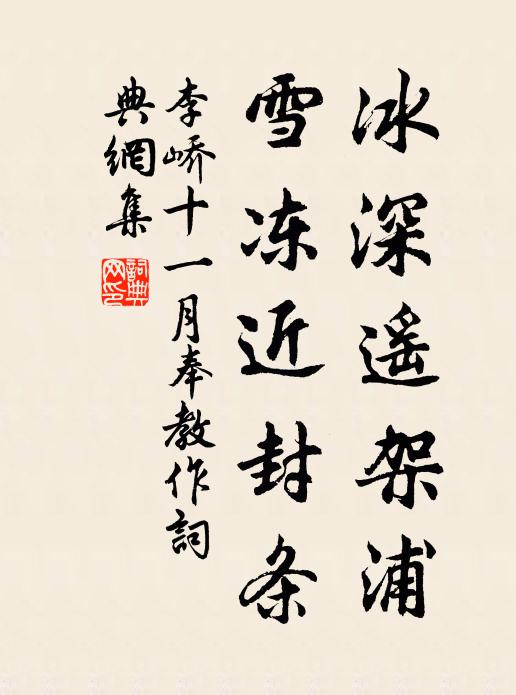 冰深遥架浦
雪冻近封条
李峤十一月奉教作詞
典網集
詞典网印